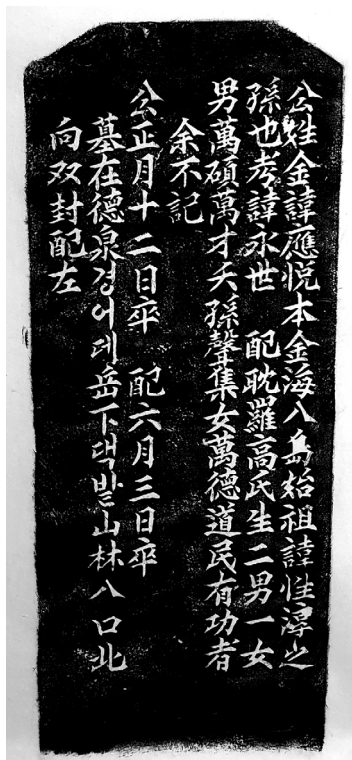 公姓金諱應悦本金海入島始祖諱性淳之
孫也考諱永世 配耽羅高氏生二男一女
男萬碩萬才夭孫馨集女萬德道民有功者
余不記
公正月十二日卒 配六月三日卒
墓在德泉경어데岳下댁발山林入口北
向双封配左